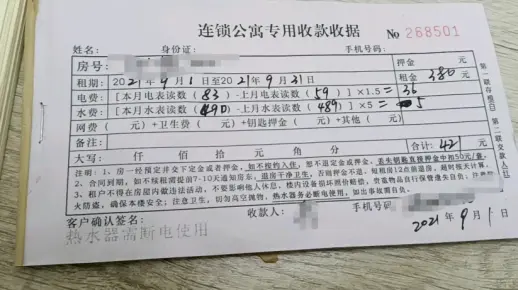 连锁公寓专用收款收据 No 268501
姓名: 身份证: 手机号码:
房号: 押金 元
租期: 2021年9月1日至2021年9月31日 租金 380 元
电费: [本月电表读数( 83 )-上月电表读数( 59 )]×1.5= 36
水费: [本月水表读数( 490 )-上月水表读数( 489 )]×5 = 5
网费( 元)+卫生费( 元)+钥匙押金( 元)+其他( 元)
备注: 合计: 421 元
大写: 仟 佰 拾 元 角 分
注明: 1、房一经预定并交下定金或者押金,如不按约入住,恕不退定金或押金,丢失钥匙直接押金中扣50元/套。
2、合同到期,如不续租需提前7-10天通知房东,退房干净卫生,否则押金不退,短租房12点前退房,超时按天计算。
3、租户不得在房屋内做违法活动,不要影响他人休息,楼内设备损坏照价赔偿,贵重物品自行保管遗失自负,注意防
火防盗,确保本楼安全;注意卫生,切勿高空抛物,热水器务必断电使用,如出事故需自负。
客户确认签名: 收款人: 手机号码:
热水器需断电使用 2021年9月1日
第一联存根
第二联交款人